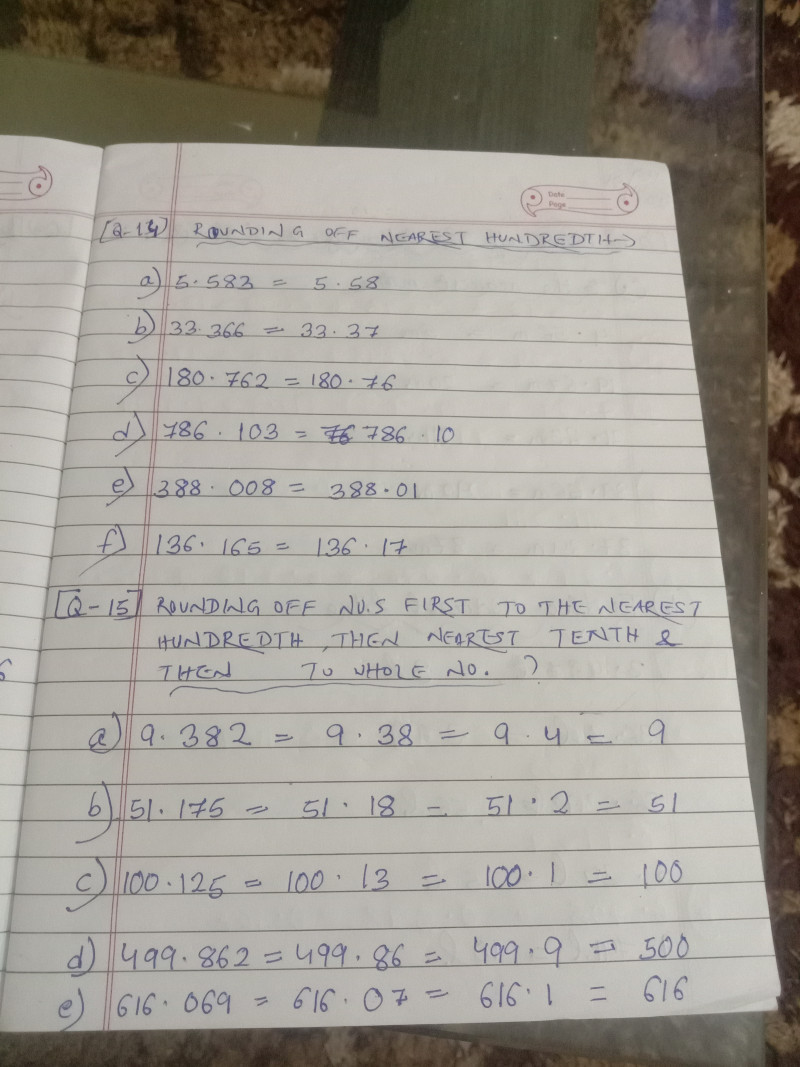 Date
Page
[Q-14] ROUNDING OFF NEAREST HUNDREDTH→
a) 5.583 = 5.58
b) 33.366 = 33.37
c) 180.762 = 180.76
d) 786.103 = 786.10
e) 388.008 = 388.01
f) 136.165 = 136.17
[Q-15] ROUNDING OFF NO.S FIRST TO THE NEAREST
HUNDREDTH, THEN NEAREST TENTH &
THEN TO WHOLE NO. ?
a) 9.382 = 9.38 = 9.4 = 9
b) 51.175 = 51.18 = 51.2 = 51
c) 100.125 = 100.13 = 100.1 = 100
d) 499.862 = 499.86 = 499.9 = 500
e) 616.069 = 616.07 = 616.1 = 616